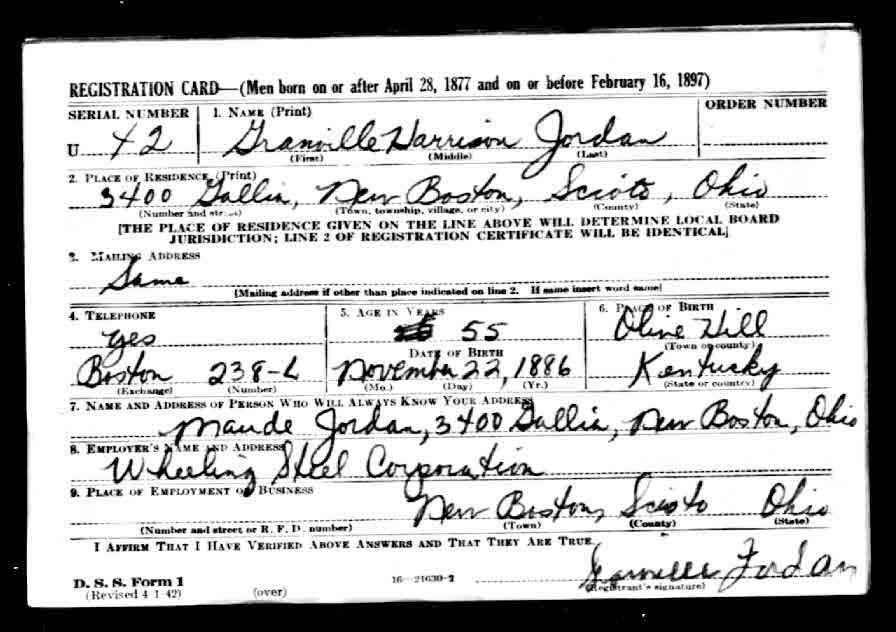 REGISTRATION CARD—(Men born on or after April 28, 1877 and on or before February 16, 1897)
SERIAL NUMBER 1. NAME (Print) ORDER NUMBER
U 42 Granville Harrison Jordan
(First) (Middle) (Last)
2. PLACE OF RESIDENCE (Print)
3400 Gallia, New Boston, Scioto, Ohio
(Number and street) (Town, township, village, or city) (County) (State)
[THE PLACE OF RESIDENCE GIVEN ON THE LINE ABOVE WILL DETERMINE LOCAL BOARD
JURISDICTION; LINE 2 OF REGISTRATION CERTIFICATE WILL BE IDENTICAL]
3. MAILING ADDRESS
Same
[Mailing address if other than place indicated on line 2. If same insert word same]
4. TELEPHONE 5. AGE IN YEARS 6. PLACE OF BIRTH
yes 55 Olive Hill
DATE OF BIRTH (Town or county)
Boston 238-L November 22, 1886 Kentucky
(Exchange) (Number) (Mo.) (Day) (Yr.) (State or country)
7. NAME AND ADDRESS OF PERSON WHO WILL ALWAYS KNOW YOUR ADDRESS
Maude Jordan, 3400 Gallia, New Boston, Ohio
8. EMPLOYER'S NAME AND ADDRESS
Wheeling Steel Corporation
9. PLACE OF EMPLOYMENT OR BUSINESS
New Boston, Scioto Ohio
(Number and street or R. F. D. number) (Town) (County) (State)
I AFFIRM THAT I HAVE VERIFIED ABOVE ANSWERS AND THAT THEY ARE TRUE.
D. S. S. Form 1 16—21630-2 Jordan
(Revised 4-1-42) (over) (Registrant's signature)